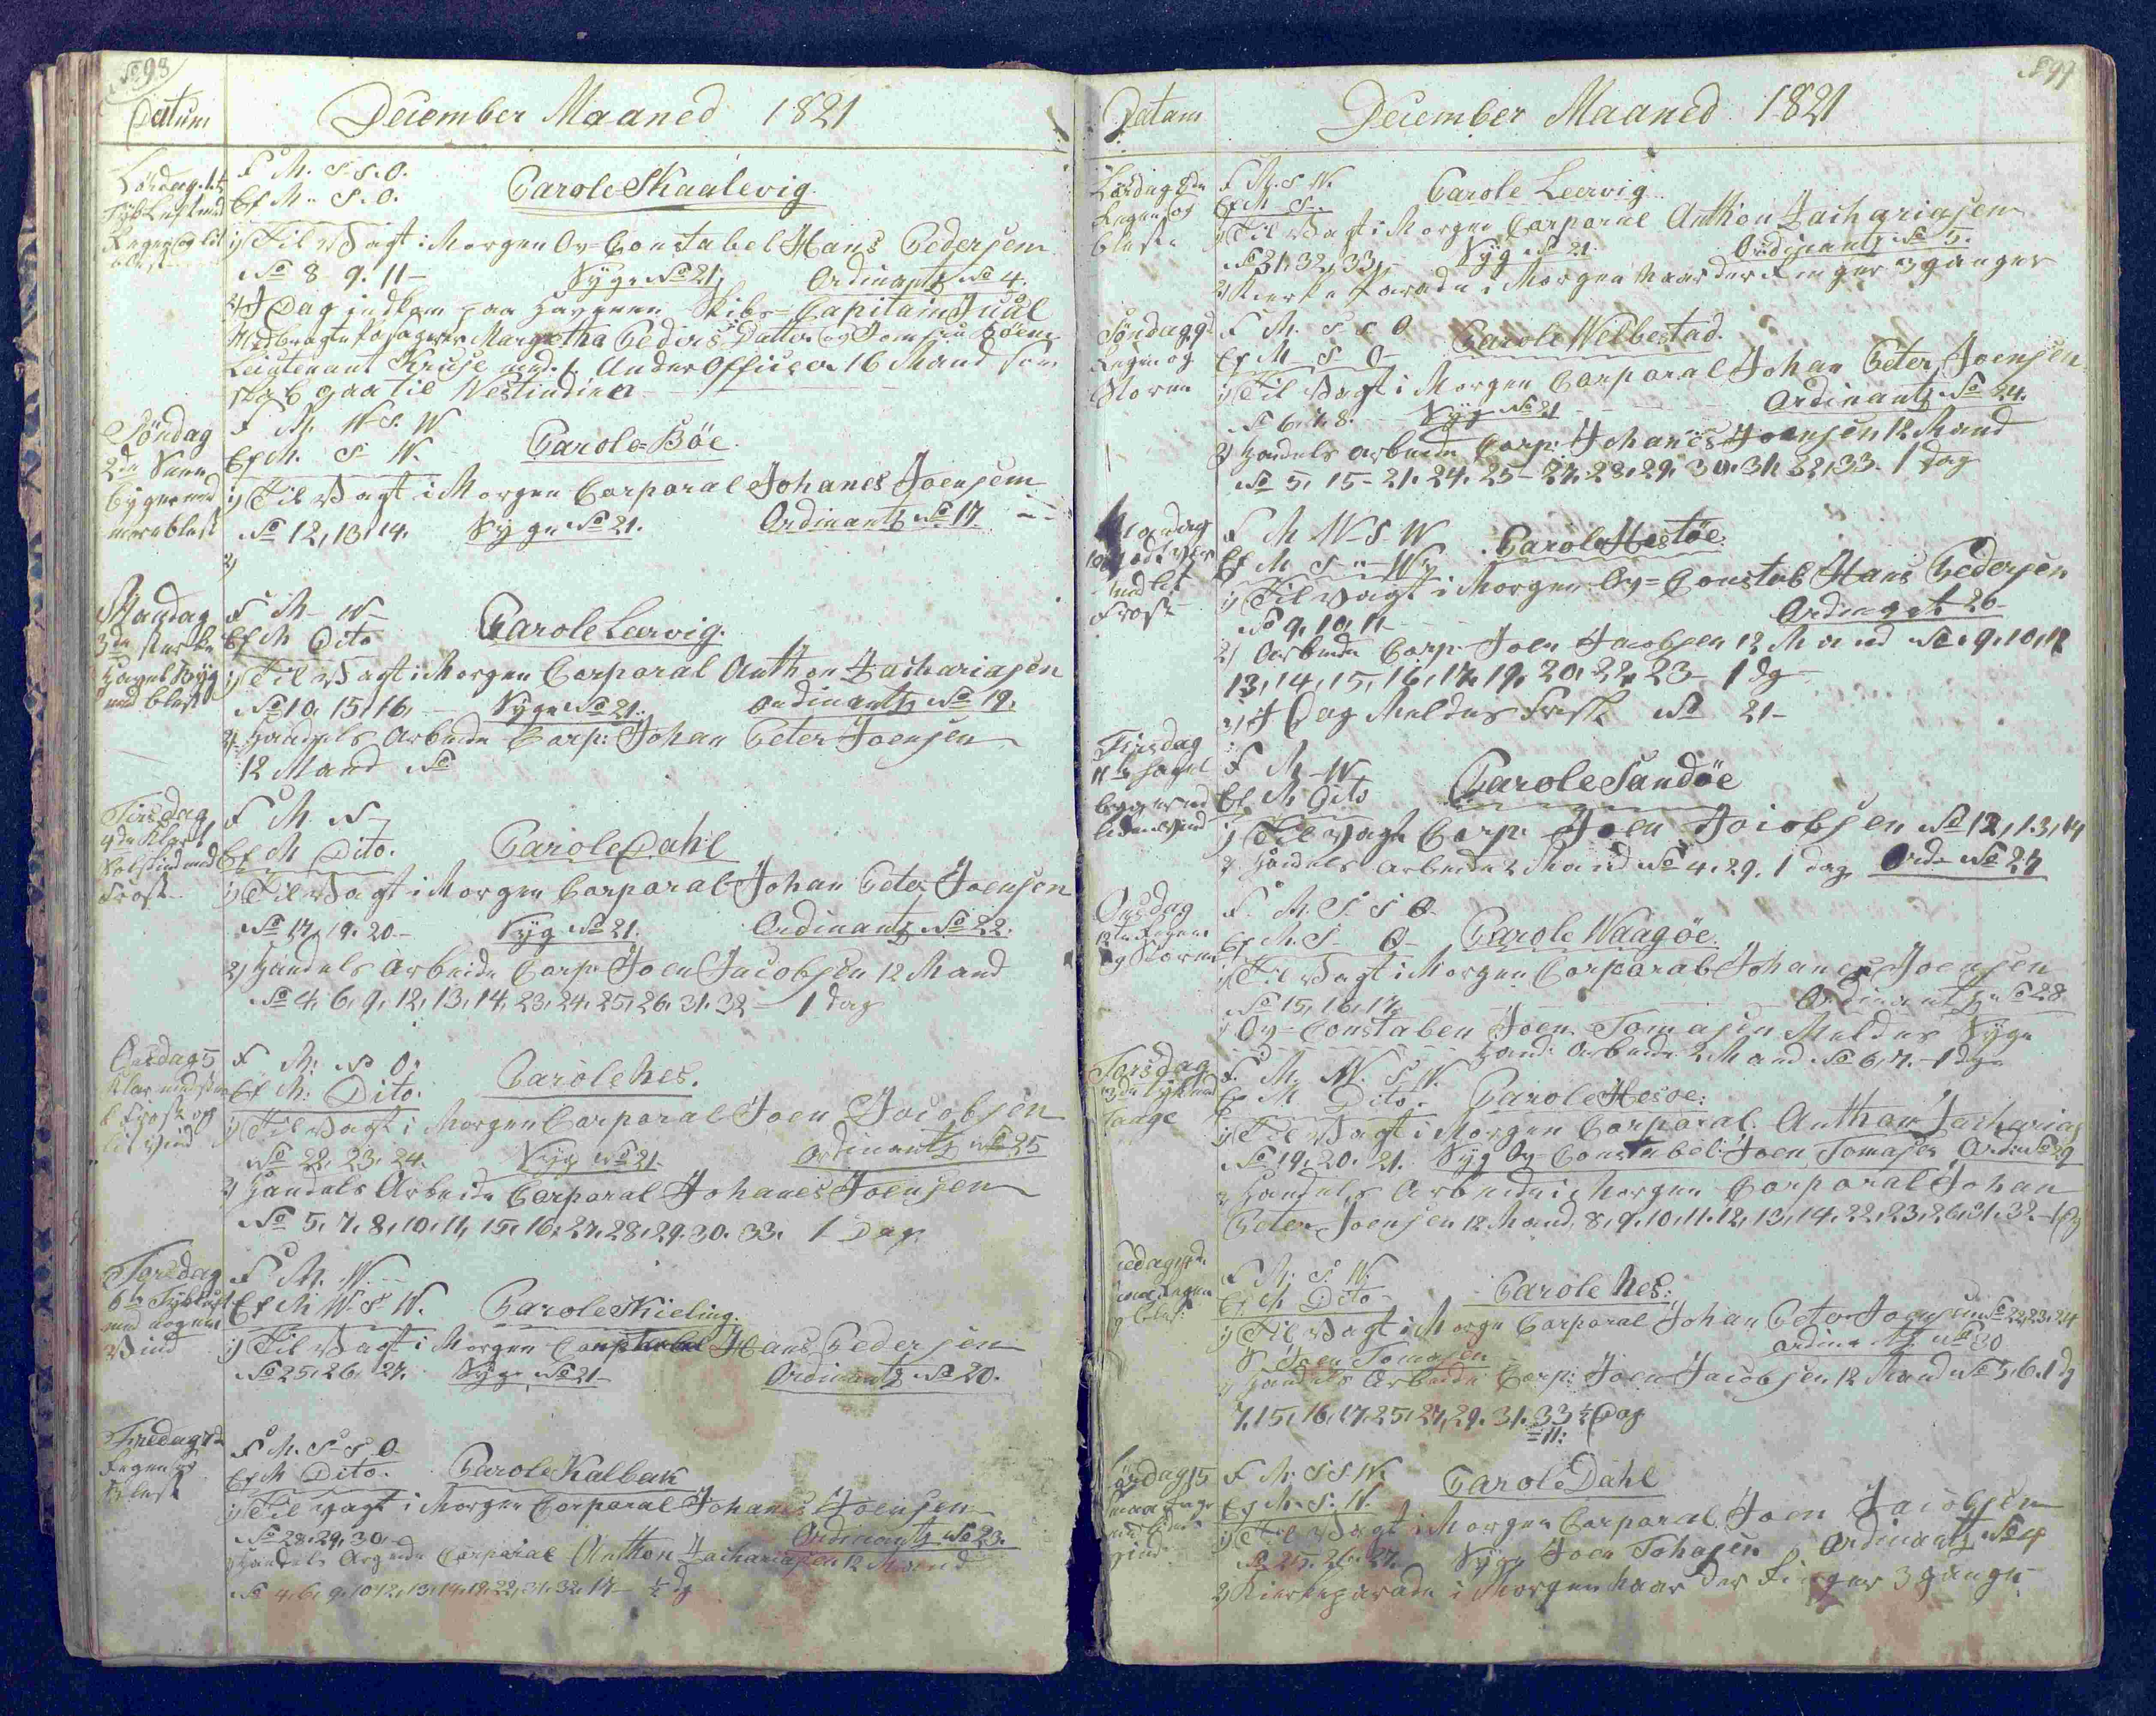 No 93
Datum
December Maaned 1821
Lørdag 1ste
Tyk Luft med
Regen og lit
blest
F M. S. S. O.
Ef M. S. O.
Parole Skaalevig.
1) Til Vagt i Morgen Ov= Constabel Hans Pedersen
No 8. 9. 11 – Syge No 21. Ordinantz No 4.
2) I Dag indkom paa Havnen Skibs= Capitain Juul
Medbragte Margretha Peders Datter og
Leutenant Kruse med 1 Under Officer 16 Mand som
skal gaa til Vestindien
Søndag
2den
Byger med
blest
F M. W S. W
Ef M. S W.
Parole Böe.
1) Til Vagt i Morgen Corporal Johanes Joensen
No 12, 13, 14. Syge No 21. Ordinantz No 17.
2)
Mandag
3de stærke
Hagel Byg
med blest
F M – W –
Ef M Dito
Parole Leervig.
1) Til Vagt i Morgen Corporal Anthon Zachariasen
No 10, 15, 16, – Syge No 21. Ordinantz No 19.
2) Handels Arbeide Corp: Johan Peter Joensen
12 Mand No
Tirsdag
4de Klart
Solskind med
Frost
F M. N –
Ef M Dito.
Parole Dahl
1) Til Vagt i Morgen Corporal Johan Peter Joensen
No 17, 19. 20 – Syg No 21. Ordinantz No 22.
2) Handels Arbeide Corp: Joen Jacobsen 12 Mand
No 4, 6, 9, 12, 13, 14, 23, 24, 25, 26, 31, 32 – 1 dag
Onsdag 5
Klar med
Frost og
lit Vind
F M. N O.
Ef M: Dito.
Parole Nes.
1) Til Vagt i Morgen Corporal Joen Jacobsen
No 22, 23, 24. Syg No 21. Ordinantz No 25
2) Handels Arbeide Corporal Johanes Joensen
No 5, 7, 8, 10, 11, 15, 16, 27, 28, 29. 30. 33. 1 Dag
Torsdag
6te Tyk Luft
med nogen
Vind
F M. W. –
Ef M W. S. W.
Parole Skieling.
1) Til Vagt i Morgen Constabel Hans Pedersen
No 25, 26, 27. Syge No 21 – Ordinantz No 20.
Fredag 7de
Regen og
Blest
F M. S S O
Ef M Dito.
Parole Kalbak
1) Til Vagt i Morgen Corporal Johanes Joensen
No 28, 29, 30, Ordinantz No 23.
2) Handels Arbeide Corporal Anthon Zachariasen 12 Mand
No 4, 6, 9, 10, 12, 13, 14, 19, 22, 31, 32, 17 – ½ dg
No 94
Datum
December Maaned 1821
Lørdag 8de
Regen og
blest
F M. S W.
Ef M S..
Parole Leervig
1) Til Vagt i Morgen Corporal Anthon Zachariasen
No 31, 32, 33, – Syg No 21. Ordinantz No 5.
2) Kierke Parade i Morgen Naar der Ringer 3 gange
Søndag 9de
Regen og
Storm
F M. S S O
Ef M S O
Parole Velbestad.
1) Til Vagt i Morgen Corporal Johan Peter Joensen
No 6, 7, 8. Syg No 21 Ordinantz No 24.
2) Handels Arbeide Corp: Johanes Joensen 12 Mand
No 5, 15 – 21, 24, 25 – 27, 28, 29, 30, 31, 32, 33. 1 dag
Mandag
10de god Veir
med lit
Frost
F M W – S W
Ef M S – W
Parole Hestöe.
1) Til Vagt i Morgen Ov= Constab Hans Pedersen
No 9, 10, 11 – Ordin: No 26 –
2) Arbeide Corp: Joen Jacobsen 12 Mand No 9, 10, 12
13, 14, 15, 16, 17, 19, 20, 22, 23 – 1 dg
3) I Dag Meldes Frisk No 21 –
Tirsdag
11te Hagel
byger med
liden Vind
F M – W
Ef M Dito
Parole Sandöe
1) Til Vagt Corp: Joen Jacobsen No 12, 13, 14
2) Handels Arbeide 2 Mand No 4, 29. 1 dag Ord: No 27
Onsdag
12te Regen
og Storm
F. M. S. S O.
Ef M. S – O –
Parole Waagöe.
1) Til Vagt i Morgen Corporal Johanes Joensen
No 15, 16, 17 Ordinantz No 28
2) Ov= Constabel Joen Tomasen Meldes Syge
Hand: Arbeide 2 Mand No 6, 7. – 1 dg
Torsdag
13de tyk med
Taage
F. M. W. S. W.
Ef M Dito.
Parole Hesöe:
1) Til Vagt i Morgen Corporal Anthon Zacharias
No 19, 20. 21. Syg Ov= Constabel: Joen Tomasen Ord: No 29
2) Handels Arbeide i Morgen Corporal Johan
Peter Joensen 12 Mand, 8, 9, 10, 11, 12, 13, 14, 22, 23, 26, 31, 32 – 1 dg
Fredag 14de
Regen
og blest
F M. S. W.
Ef M Dito –
Parole Nes:
1) Til Vagt i Morgen Corporal Johan Peter Joensen No 22, 23, 24
S. Joen Tomasen Ordinantz No 30
2) Handels Arbeide Corp: Joen Jacobsen 12 Mand No 5, 6, 1 dg
7, 15, 16, 17, 25, 27, 29, 31, 33 ½ Dag
= 11:
Lørdag 15
Vind
F M. S S W.
Ef M. S. W.
Parole Dahl
1) Til Vagt i Morgen Corporal Joen Jacobsen
No 25. 26. 27. Syge Joen Tomasen Ordinantz No 4
2) Kierkeparade i Morgen Naar der Ringes 3 gange